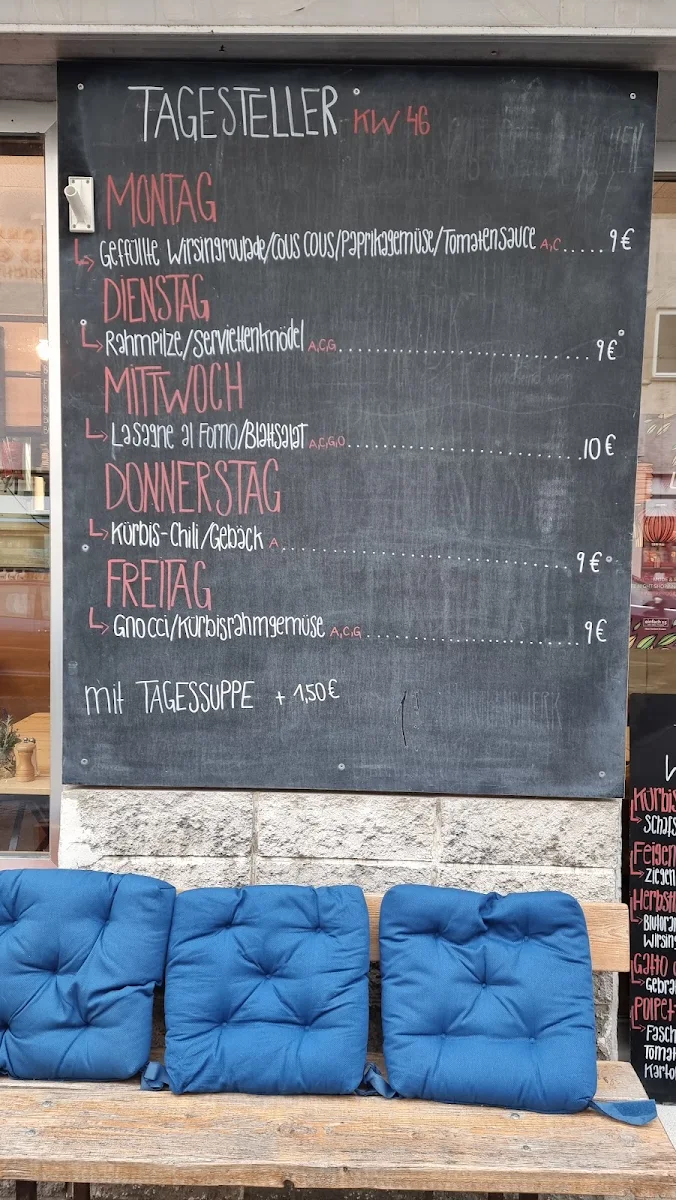 TAGESTELLER KW 46
MONTAG
Geffüllte Wirsingroulade/Cous Cous/Paprikagemüse/Tomatensauce A,C..... 9€
DIENSTAG
Rahmpilze/Serviettenknödel A,C,G.................................... 9€
MITTWOCH
Lasagne al Forno/Blattsalat A,C,G,O.................................... 10€
DONNERSTAG
Kürbis-Chili/Gebäck A.................................... 9€
FREITAG
Gnocci/Kürbisrahmgemüse A,C,G.................................... 9€
mit TAGESSUPPE + 1,50€
Kürbis
Schafs
Feigen
Ziegen
Herbst
Blutora
Wirsing
Gebra
Polpet
Fasch
Tomat
Karto